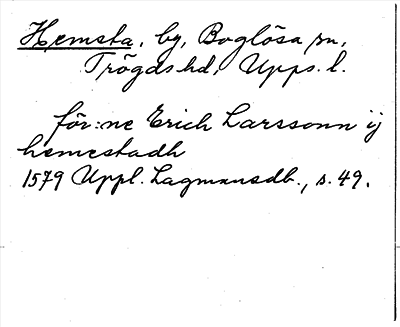 Hemsta, by, Boglösa sn,
Trögds hd, Upps. l.
för:ne Erich Larssonn ij
hemestadh
1579 Uppl. Lagmansdb., s. 49.